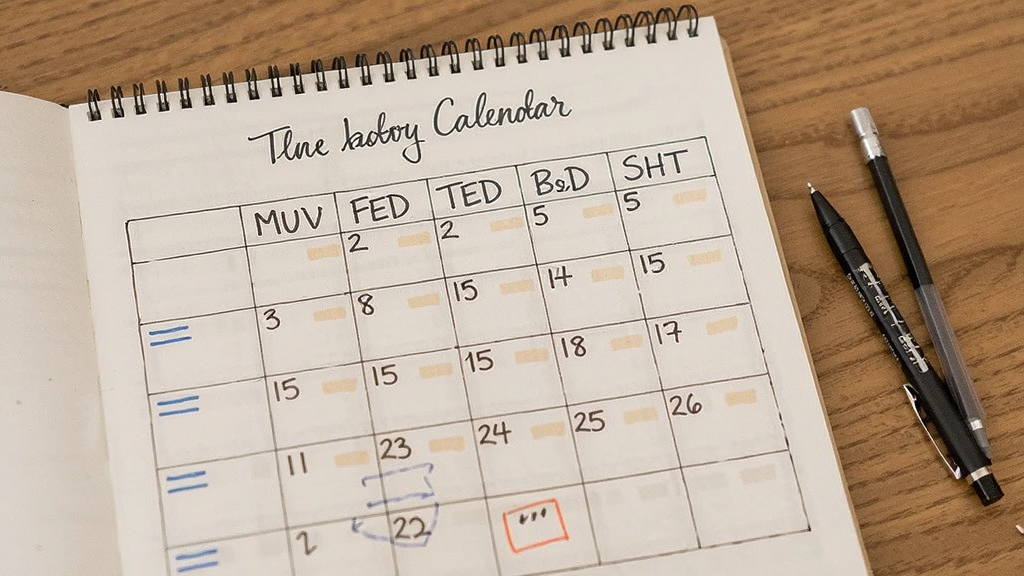 Tlne kotoy Calendar
MUV FED TED BeD SHT
2 2 5 5
3 8 15 14 15
15 15 15 18 17
11 23 24 25 26
2 22